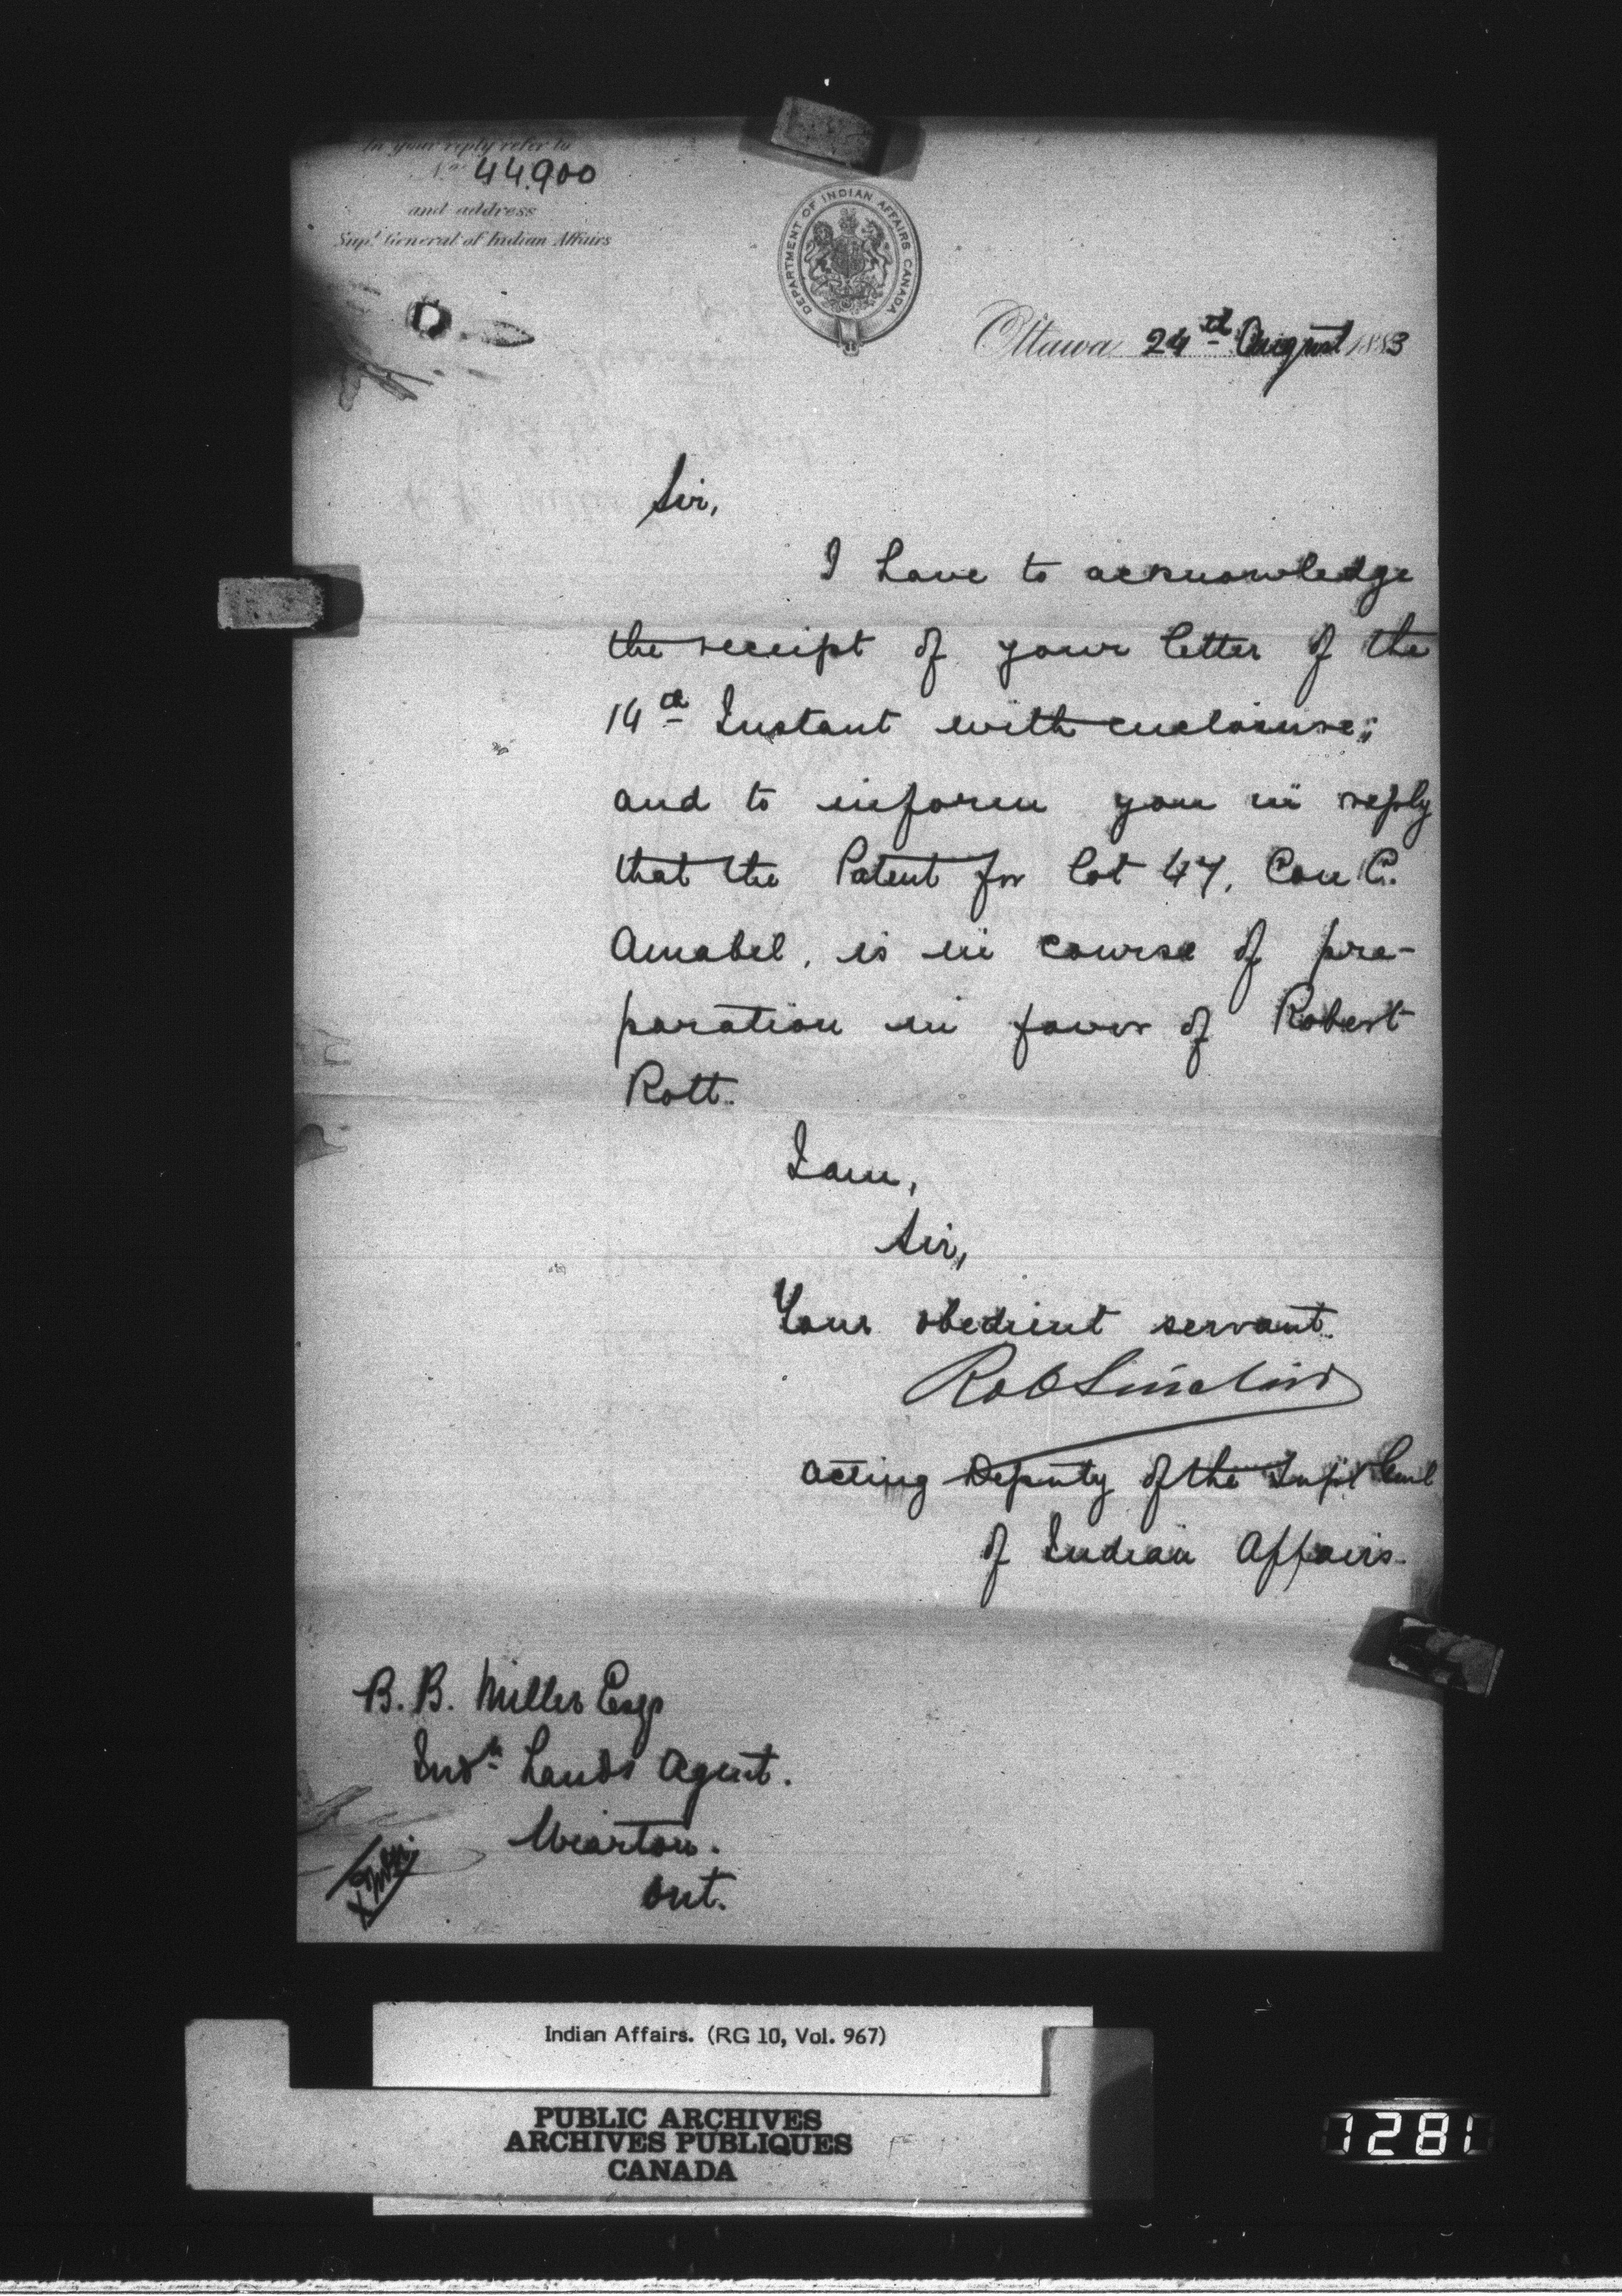 In your reply refer to
No. 44.900
and address
Supt. General of Indian Affairs
DEPARTMENT OF INDIAN AFFAIRS CANADA
Ottawa 24th August 1883
Sir,
I have to acknowledge
the receipt of your letter of the
14th Instant with enclosure;
and to inform you in reply
that the Patent for lot 47, Con C.
Amabel, is in course of pre-
paration in favor of Robert
Rott.
I am,
Sir,
Your obedient servant.
Rob Sinclair
Acting Deputy of the Supt Genl
of Indian Affairs.
B. B. Miller Esqr
Indn Lands Agent.
Wiarton.
Ont.
Indian Affairs. (RG 10, Vol. 967)
PUBLIC ARCHIVES
ARCHIVES PUBLIQUES
CANADA
1281